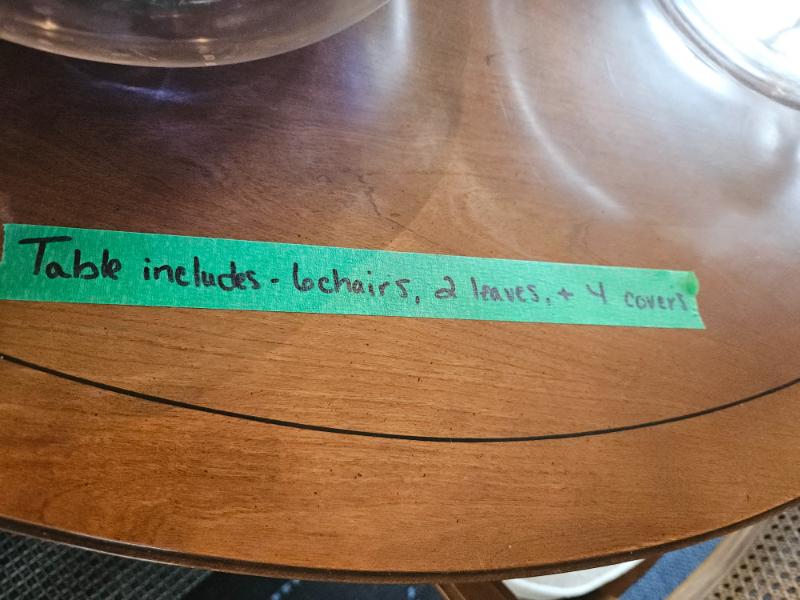 Table includes - 6 chairs, 2 leaves, + 4 covers